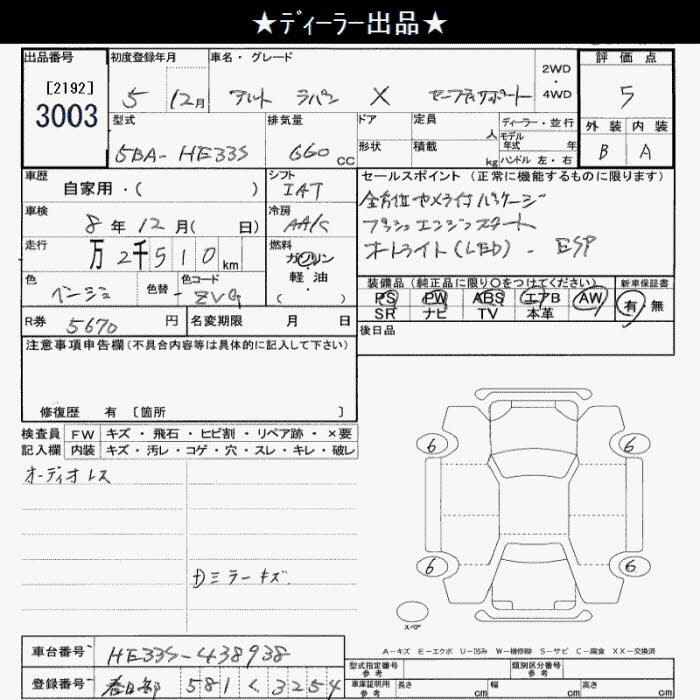 ★ディーラー出品★
出品番号 初度登録年月 車名・グレード 2WD・4WD 評価点
[2192] 3003 5 12月 アルト ラパン X セーフティサポート 5
型式 排気量 ドア 定員 人 ディーラー・並行 外装 内装
5BA-HE33S 660cc 形状 積載 kg モデル年式 年 ハンドル 左・右 B A
車歴 自家用・( ) シフト IAT セールスポイント(正常に機能するものに限ります)
車検 8年12月( 日) 冷房 AA/C 全方位カメラ付パッケージ
走行 万2千510km 燃料 ガソリン プッシュエンジンスタート
軽・油 ( ) オートライト(LED)・ESP
色 ベージュ 色替 - 色コード ZVG 装備品(純正品に限り〇をつけてください) 新車保証書
PS PW ABS エアB AW 有 無
SR ナビ TV 本革
R券 5670円 名変期限 月 日 後日品
注意事項申告欄(不具合内容等は具体的に記入して下さい)
修復歴 有 [箇所 ]
検査員 FW キズ・飛石・ヒビ割・リペア跡・×要
記入欄 内装 キズ・汚レ・コゲ・穴・スレ・キレ・破レ
オーディオレス
6 6
ミラーキズ
6 6
スペア
A-キズ E-エクボ U-凹み W-補修跡 S-サビ C-腐食 XX-交換済
車台番号 HE33S-438938 型式指定番号 参考 類別区分番号 参考
登録番号 春日部 581 く 3254 車庫証明用 参考 長さ cm 幅 cm 高さ cm